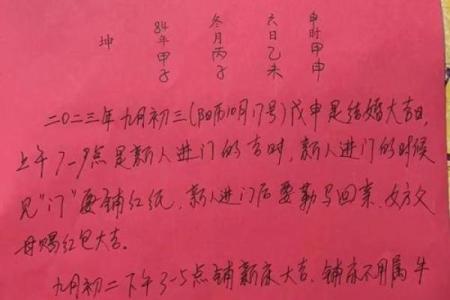 坤
84年 甲子
冬月 丙子
六日 乙未
申时 甲申
二〇二三年九月初三(阳历10月17号)戊申是结婚大吉日,
上午7-9点是新人进门的吉时,新人进门的时候
见“门”要铺红纸,新人进门后要勒马回来,女方父
母赐红包大吉。
九月初二下午3-5点铺新床大吉,铺床不用属牛